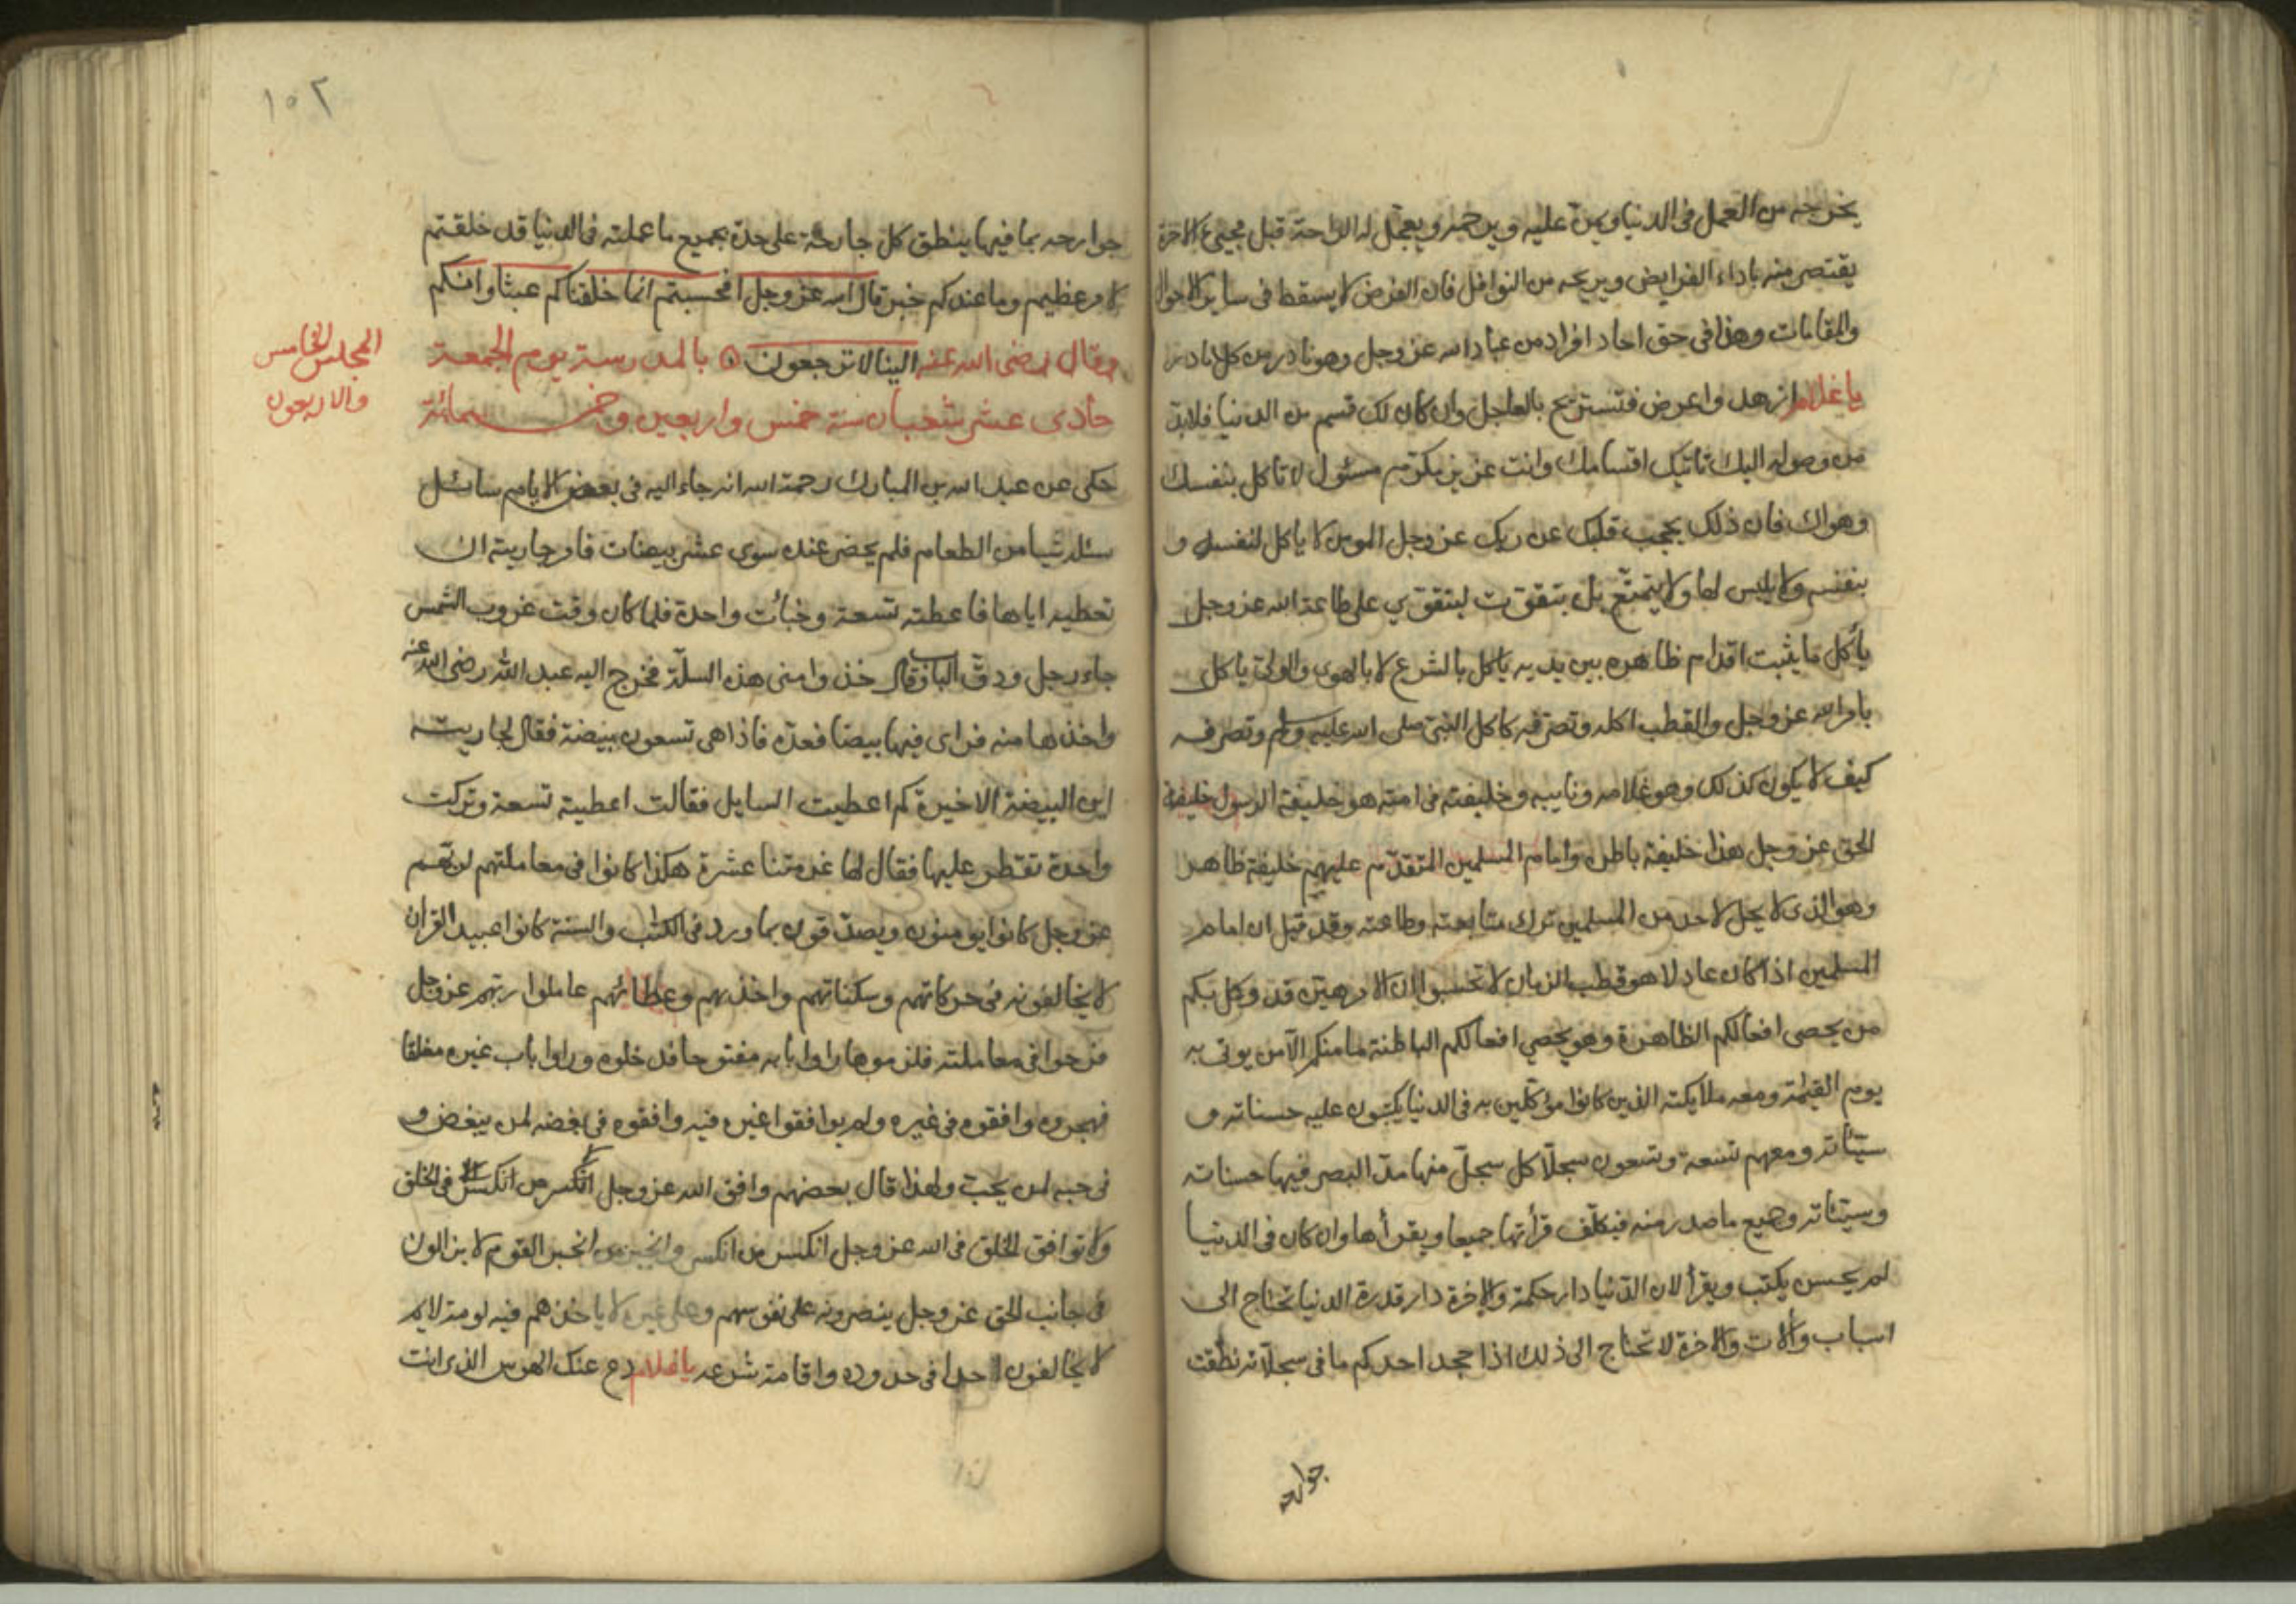 يخرجه من العمل في الدنيا ويمن عليه ويرحمه ويعجل له الراحة قبل مجيئ الاخرة
يقتصر منه باداء الفرايض ويريحه من النوافل فان الفرض لا يسقط في ساير الاحوال
والمقامات وهذا في حق احاد افراد من عباد الله عز وجل وهو نادر من كل نادر
يا غلام ازهد واعرض فتستريح بالعاجل وان كان لك قسم من الدنيا فلابد
من وصوله اليك تاتيك اقسامك وانت عزيز مكرم مسئول لا تاكل بنفسك
وهواك فان ذلك يحجب قلبك عن ربك عز وجل المومن لا ياكل لنفسه و
بنفسه ولا يلبس لها ولا يتمتع بل يتقوت ليتقوى على طاعة الله عز وجل
يأكل ما يثبت اقدام ظاهره بين يديه ياكل بالشرع لا بالهوى والولى ياكل
بامر الله عز وجل والقطب اكله وتصرفه كاكل النبي صلى الله عليه وسلم وتصرفه
كيف لا يكون كذلك وهو غلامه ونايبه وخليفته في امته هو خليفة الرسول خليفة
الحق عز وجل هذا خليفة باطن وامام المسلمين المتقدم عليهم خليفة ظاهر
وهو الذي لا يحل لاحد من المسلمين ترك متابعته وطاعته وقد قيل ان امام
المسلمين اذا كان عادلا هو قطب الزمان لا تحسبوا ان الامر هين قد وكل بكم
من يحصى افعالكم الظاهرة وهو يحصي افعالكم الباطنة ما منكم الا من يوتى به
يوم القيمة ومعه ملايكته الذين كانوا مؤكلين به في الدنيا يكتبون عليه حسناته و
سيئاته ومعهم تسعة وتسعون سجلا كل سجل منها مد البصر فيها حسناته
وسيئاته وجميع ما صدر منه فيكلف قرأتها جميعا ويقرأها وان كان في الدنيا
لم يحسن يكتب ويقرأ لان الدنيا دار حكمة والاخرة دار قدرة الدنيا تحتاج الى
اسباب وآلات والاخرة لا تحتاج الى ذلك اذا جحد احدكم ما في سجلاته نطقت
جوارحه
١٠٢
جوارحه بما فيها ينطق كل جارحة على حدة بجميع ما عملته في الدنيا قد خلقتم
لامر عظيم وما عندكم خبر قال الله عز وجل افحسبتم انما خلقناكم عبثا وانكم
الينا لا ترجعون وقال رضى الله عنه بالمدرسة يوم الجمعة
حادى عشر شعبان سنة خمس واربعين وخمسمائة
المجلس الخامس
والاربعون
حكى عن عبد الله بن المبارك رحمة الله انه جاء اليه في بعض الايام سائل
سئله شيا من الطعام فلم يحضر عنده سوى عشر بيضات فامر جاريته ان
تعطيه اياها فاعطته تسعة وخبأت واحدة فلما كان وقت غروب الشمس
جاء رجل ودق الباب وقال خذوا منى هذه السلة فخرج اليه عبد الله رضى الله عنه
واخذها منه فراى فيها بيضا فعده فاذا هى تسعون بيضة فقال لجاريته
اين البيضة الاخيرة كم اعطيت السايل فقالت اعطيته تسعة وتركت
واحدة نفطر عليها فقال لها غرمتنا عشرة هكذا كانوا في معاملتهم لربهم
عز وجل كانوا يومنون ويصدقون بما ورد في الكتاب والسنة كانوا عبيد القرآن
لا يخالفونه في حركاتهم وسكناتهم واخذهم وعطائهم عاملوا ربهم عز وجل
فربحوا في معاملته فلزموها راوا بابه مفتوحا فدخلوه وراوا باب غيره مغلقا
فهجروه وافقوه في غيره ولم يوافقوا غيره فيه وافقوه في بغضه لمن يبغض و
في حبه لمن يحب ولهذا قال بعضهم وافق الله عز وجل في الخلق
ولا توافق الخلق في الله عز وجل انكسر من انكسر وانجبر من انجبر القوم لا يزالون
في جانب الحق عز وجل ينصرونه على نفوسهم وعلى غيرهم لا ياخذهم فيه لومة لايم
لا يخالفون احدا في حدوده واقامة شرعه يا غلام دع عنك الهوس الذى انت